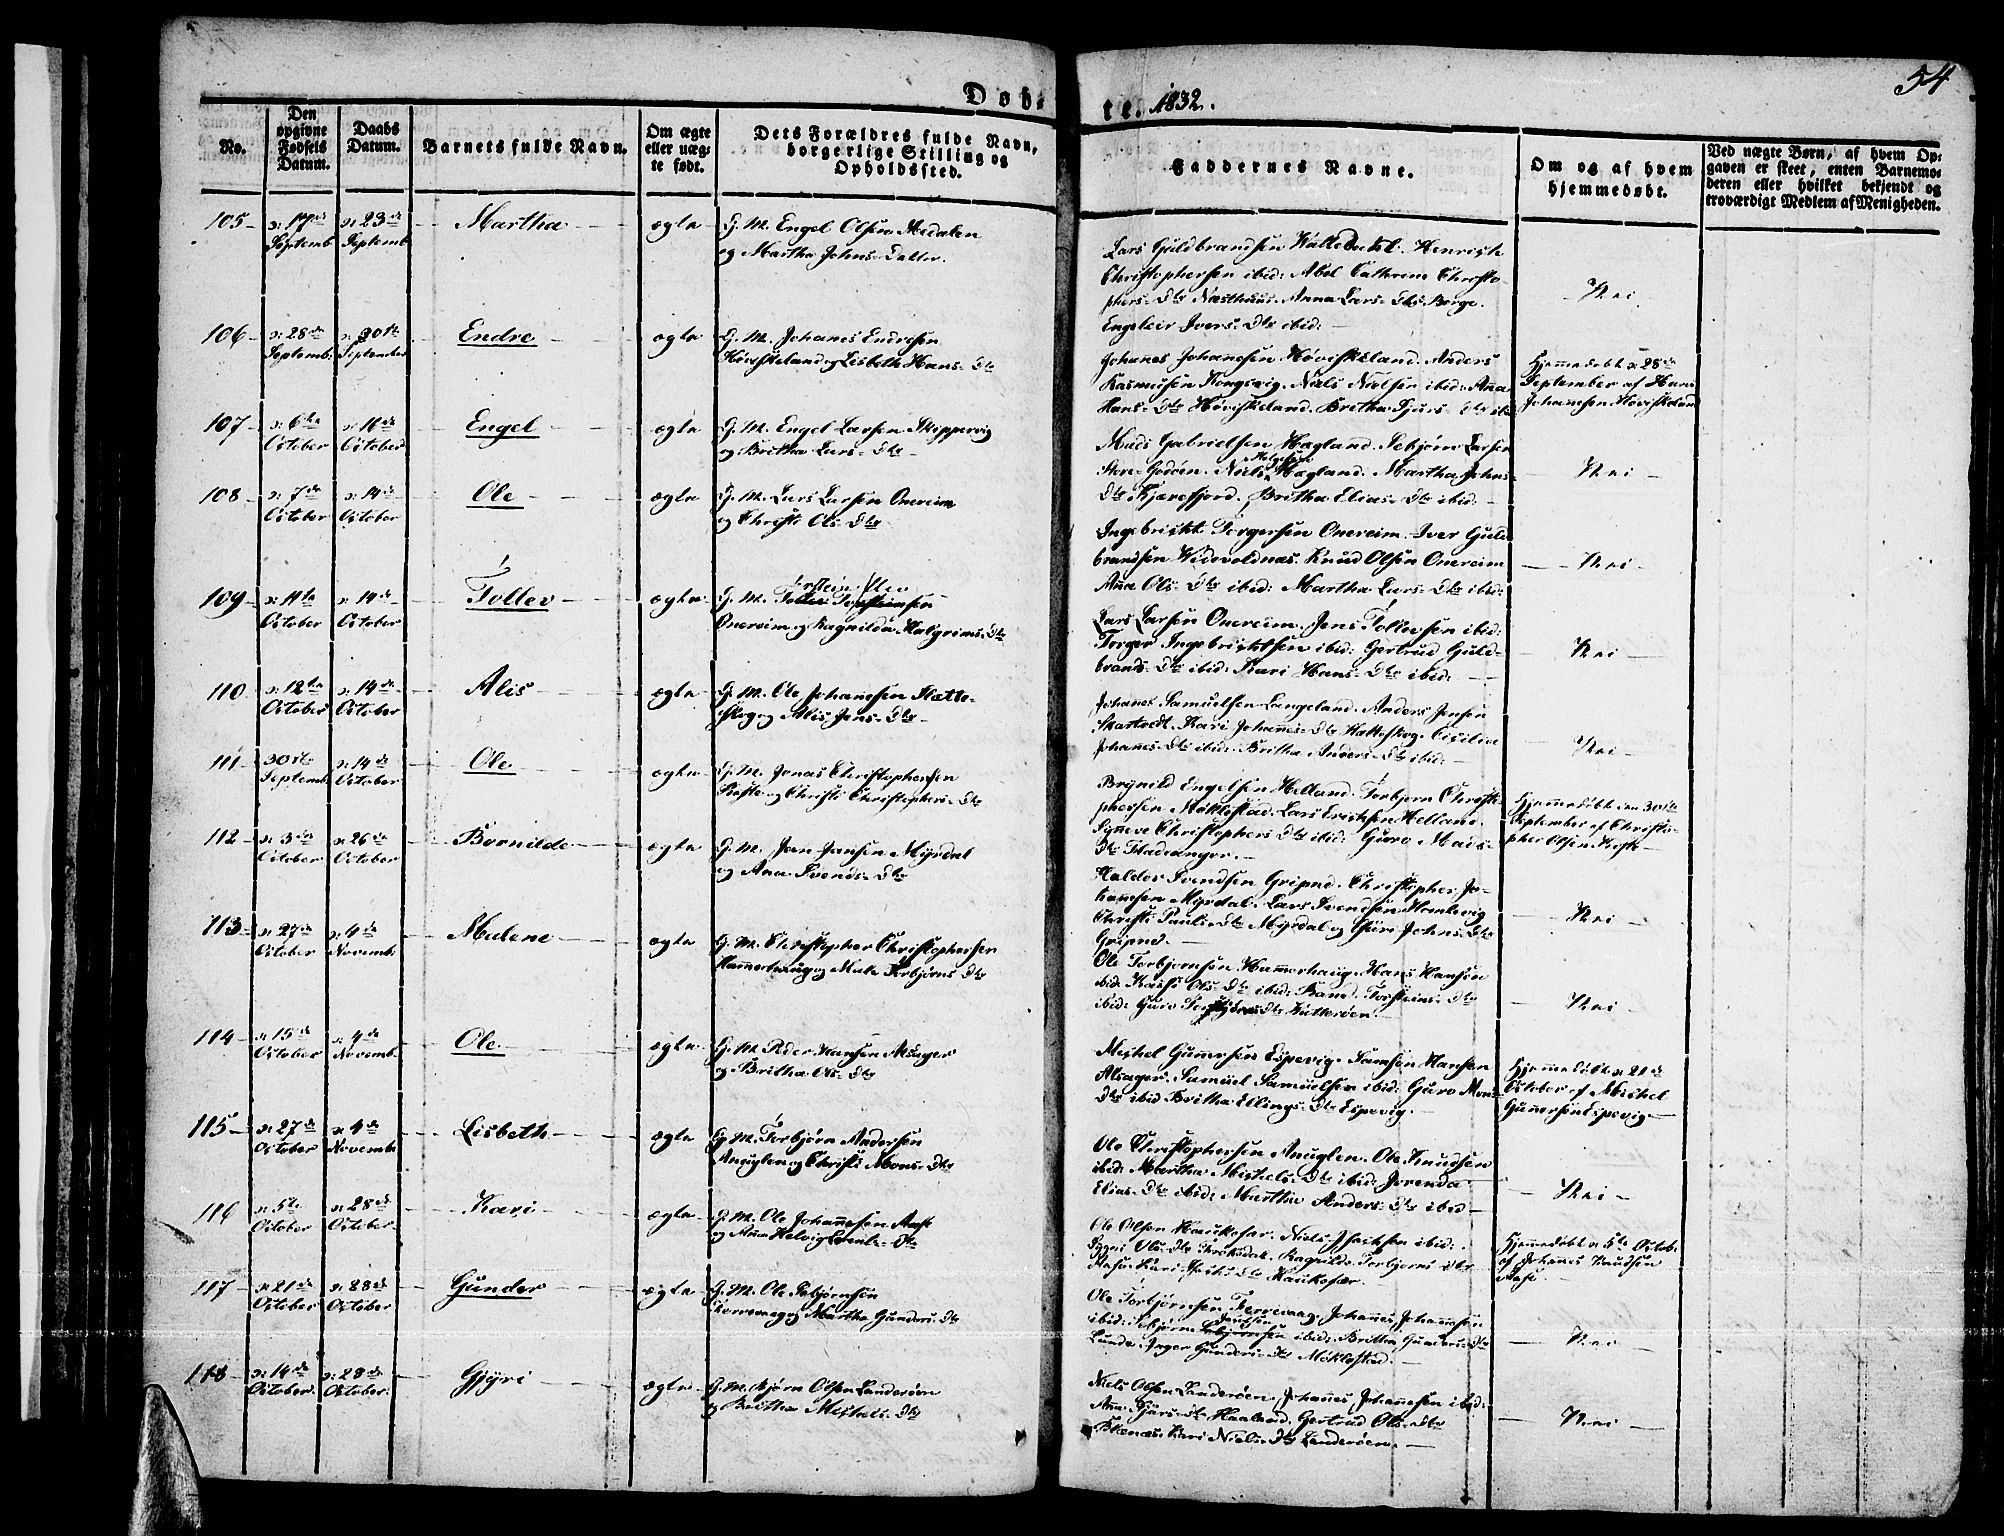 54
Døbte. 1832.
No.
Den opgivne Fødsels Datum.
Daabs Datum.
Barnets fulde Navn.
Om ægte eller uægte født.
Dets Forældres fulde Navn, borgerlige Stilling og Opholdssted.
Faddernes Navne.
Om og af hvem hjemmedøbt.
Ved uægte Børn, af hvem Opgaven er skeet, enten Barnemoderen eller hvilket bekjendt og troværdigt Medlem af Menigheden.
105 d: 17de Septemb d: 23de Septemb Martha ægte
G. M. Engel Olsen
og Martha Johns Datter.
Lars Guldbrandsen Henrich
Christophersen ibid: Abel Cathrine Christo-
phers Dtr Næsthuus. Anna Lars Dtr Berge.
Engeleir Ivers Dtr ibid:
Nei
106 d: 28de Septemb: d: 30te September Endre ægte
G. M. Johanes Endresen
Høviskeland og Lisbeth Hans Dtr
Johanes Johanesen Høviskeland. Anders
Rasmusen Kongsvig. Niels Nielsen ibid: Anna
Hans Dtr Høviskeland. Britha Sjurs Dtr ibid
Hjemmedøbt d: 28de
September af Hans
Johanesen Høviskeland
107 d: 6te October October Engel ægte
G. M. Engel Larsen Skippervig
og Britha Lars Dtr
Mads Gabrielsen Hagland. Sebjørn Larsen
Store Godøen. Niels Hagland. Martha Johns
Dtr Kjærefjord. Britha Elias Dtr ibid:
Nei
108 d: 7de October d: 14de October Ole ægte
G. M. Lars Larsen Onereim
og Christi Ols Dtr
Ingebrickt Torgersen Onereim. Iver Guld
brandsen Knud Olsen Onereim
Anne Ols Dtr ibid: Martha Lars Dtr ibid:
Nei
109 d: 11te October d: 14de October Tollev ægte
G. M.
Onereim og Ragnilda Halgrims Dtr
Lars Larsen Onereim. Jens Tollevsen ibid:
Torger Ingebricktsen ibid: Gertrud Guld-
brands Dtr ibid: Kari Hans Dtr ibid:
Nei
110 d: 12te October d: 14de October Alis ægte
G. M. Ole Johanesen Hatte-
skog og Alis Jens Dtr
Johanes Samuelsen Langeland. Anders Jensen
Skartvedt. Kari Johannes Dtr Hatteskog. Cicilia
Johanes Dtr ibid: Britha Anders Dtr ibid:
Nei
111 30te Septemb: d: 14de October Ole ægte
G. M. Jonas Christophersen
og Christi Christophers Dtr
Brynild Engelsen Helland. Torbjørn Christo-
phersen Møklestad. Lars Erichsen Helland.
Synneve Christophers Dtr ibid: Guro Mads
Dtr Fladeanger.
Hjemmedøbt den 30te
September af Christo-
pher Olsen
112 d: 3de October d: 26de October Bornilde ægte
G. M. Jon Jansen Myrdal
og Ana Svends Dtr
Halder Svendsen Gripne. Christopher Jo-
hannesen Myrdal. Lars Svendsen Homlevig
Christi Pauls Dtr Myrdal og Guri Johns Dtr
Gripne.
Nei
113 d: 27de October d: 4de Novemb: Malene ægte
G. M. Christopher Christophersen
Hamerhaug og Male Torbjørns Dtr
Ole Torbjørnsen Hamerhaug. Hans Hansen
ibid: Ols Dtr ibid: Rand. Torsteins Dtr
ibid: Guro
Nei
114 d: 15de October d: 4de Novemb: Ole ægte
G. M. Peder Hansen Alsager
og Britha Ols Dtr
Mickel Gunnersen Espevig. Samson Hansen
Alsager. Samuel Samuelsen ibid: Guro Mons
Dtr ibid Britha Ellings Dtr Espevig.
Hjemmedøbt d: 21de
October af Mickel
Gunnersen Espevig
115 d: 27de October d: 4de Novemb: Lisbeth ægte
G. M. Torbjørn Andersen
Anuglen og Christi Mons Dtr
Ole Christophersen Anuglen. Ole Knudsen
ibid: Martha Mickels Dtr ibid: Jorenda
Elias Dtr ibid: Martha Anders Dtr ibid
Nei
116 d: 5te October d: 28de October Kari ægte
G. M. Ole Johannesen Aase
og Ana Helvig Dtr
Ole Olsen Haukefær. Niels Isacksen ibid:
Ols Dtr Ragnilde Torbjørns Dtr
Kari Dtr Haukefær.
Hjemmedøbt d: 5te Octob:
af Johannes Knudsen
Aase
117 d: 21de October d: 28de October Gunder ægte
G. M. Ole Tebjørnsen
og Martha Gunders Dtr
Ole Torbjørnsen Johannes Johannesen
ibid: Sebjørn ibid: Britha Gunders Dtr
Lunde. Gunders Dtr Møklestad.
Nei
118 d: 14de October. d: 28de October. Gjyri ægte
G. M. Bjørn Olsen Landerøen
og Britha Mickels Dtr
Niels Olsen Landerøen, Johannes Johannesen ibid:
Ana Sjurs Dtr Haaland. Gertrud Ols Dtr
Kari Niels Dtr Landerøen.
Nei